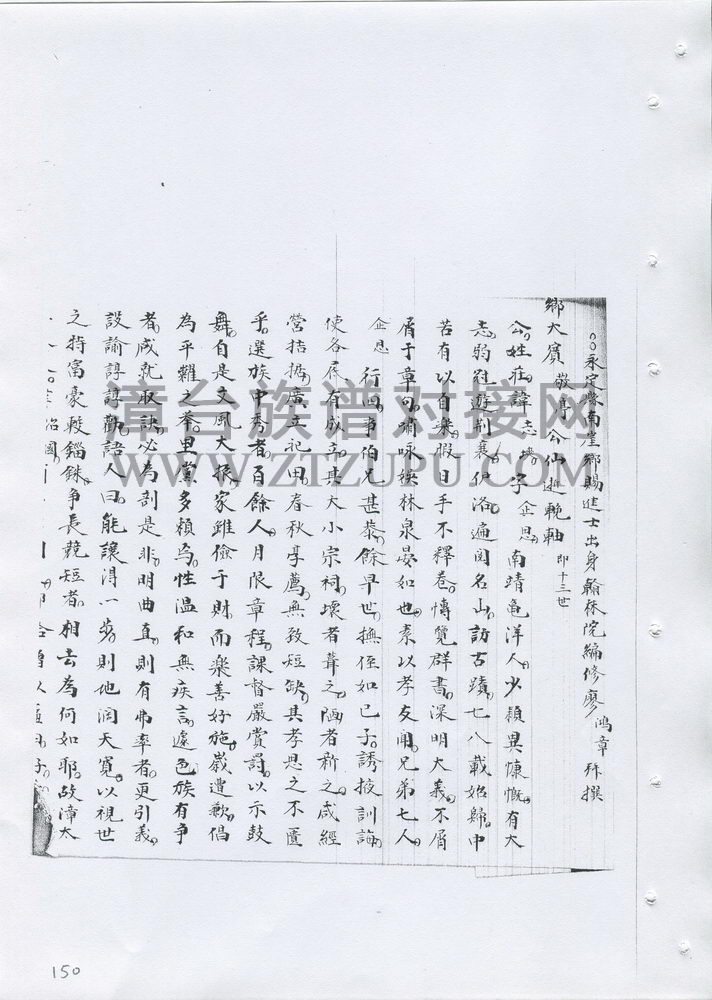 永定縣南崖鄉賜進士出身翰林院編修廖鴻章拜撰
鄉大賓敬亭公仙逝輓軸 即十三世
公姓莊諱志 字企恩南靖龜洋人少穎異慷慨有大
志弱冠遊荊襄伊洛遍閱名山訪古蹟七八載始歸中
若有以自樂假日手不釋卷博覽群書深明大義不屑
屑于章句嘯咏娛林泉晏如也素以孝友聞兄弟七人
企恩行四事伯兄甚恭餘早世撫侄如已子誘掖訓誨
使各有成立其大小宗祠壞者葺之陋者新之咸經
營拮据廣立祀田春秋享薦無致短缺其孝思之不匱
乎選族中秀者百餘人月限章程課督嚴賞罰以示鼓
舞自是文風大振家雖儉于財而樂善好施歲遭歉倡
為平糶之舉里黨多賴焉性溫和無疾言遽色族有爭
者咸就取訣必為剖是非明曲直則有弗率者更引義
設諭諄諄勸語人曰能讓得一步則他濶天寬以視世
之恃富豪較錙銖爭長競短者相去為何如耶故漳太
治國
漳台族谱对接网
WWW.ZTZUPU.COM
150